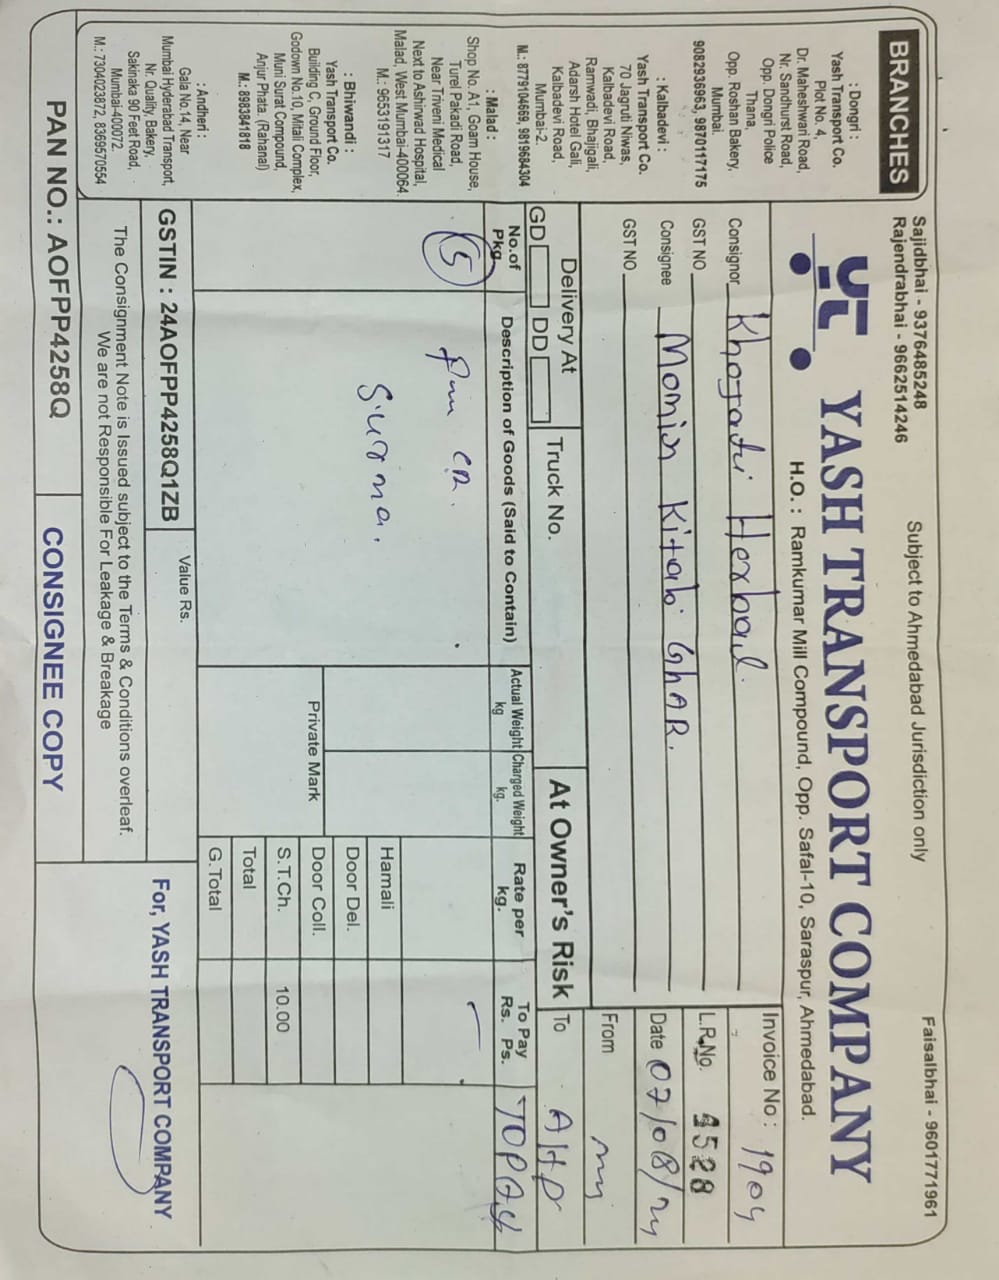 BRANCHES
: Dongri :
Yash Transport Co.
Plot No. 4,
Dr. Maheshwari Road,
Nr. Sandhurst Road,
Opp. Dongri Police
Thana,
Opp. Roshan Bakery,
Mumbai.
9082936963, 9870117175
: Kalbadevi :
Yash Transport Co.
70 Jagruti Niwas,
Kalbadevi Road,
Ramwadi, Bhajigali,
Adarsh Hotel Gali,
Kalbadevi Road,
Mumbai-2.
M.: 8779104669, 9819684304
: Malad :
Shop No. A1, Goam House,
Turel Pakadi Road,
Near Triveni Medical
Next to Ashirwad Hospital,
Malad, West Mumbai-400064.
M.: 9653191317
: Bhiwandi :
Yash Transport Co.
Building C, Ground Floor,
Godown No.10, Mitali Complex,
Muni Surat Compound,
Anjur Phata. (Rahanal)
M.: 8983841818
: Andheri :
Gala No.14, Near
Mumbai Hyderabad Transport,
Nr. Quality Bakery,
Sakinaka 90 Feet Road,
Mumbai-400072.
M.: 7304023872, 8369570554
Sajidbhai - 9376485248
Rajendrabhai - 9662514246
Subject to Ahmedabad Jurisdiction only
Faisalbhai - 9601771961
YASH TRANSPORT COMPANY
H.O. : Ramkumar Mill Compound, Opp. Safal-10, Saraspur, Ahmedabad.
Consignor Khojati Herbal.
GST NO
Consignee Momin Kitab GHAR.
GST NO
Invoice No : 1904
L.R.No. 4528
Date 07/08/24
From
Delivery At
GD DD
Truck No.
At Owner's Risk
To
No.of Pkg.
Description of Goods (Said to Contain)
Actual Weight kg
Charged Weight kg.
Rate per kg.
To Pay Rs. Ps.
TOPAY
5
Surma.
Private Mark
Hamali
Door Del.
Door Coll.
S.T.Ch. 10.00
Total
G.Total
GSTIN : 24AOFPP4258Q1ZB
Value Rs.
The Consignment Note is Issued subject to the Terms & Conditions overleaf.
We are not Responsible For Leakage & Breakage
For, YASH TRANSPORT COMPANY
PAN NO.: AOFPP4258Q
CONSIGNEE COPY